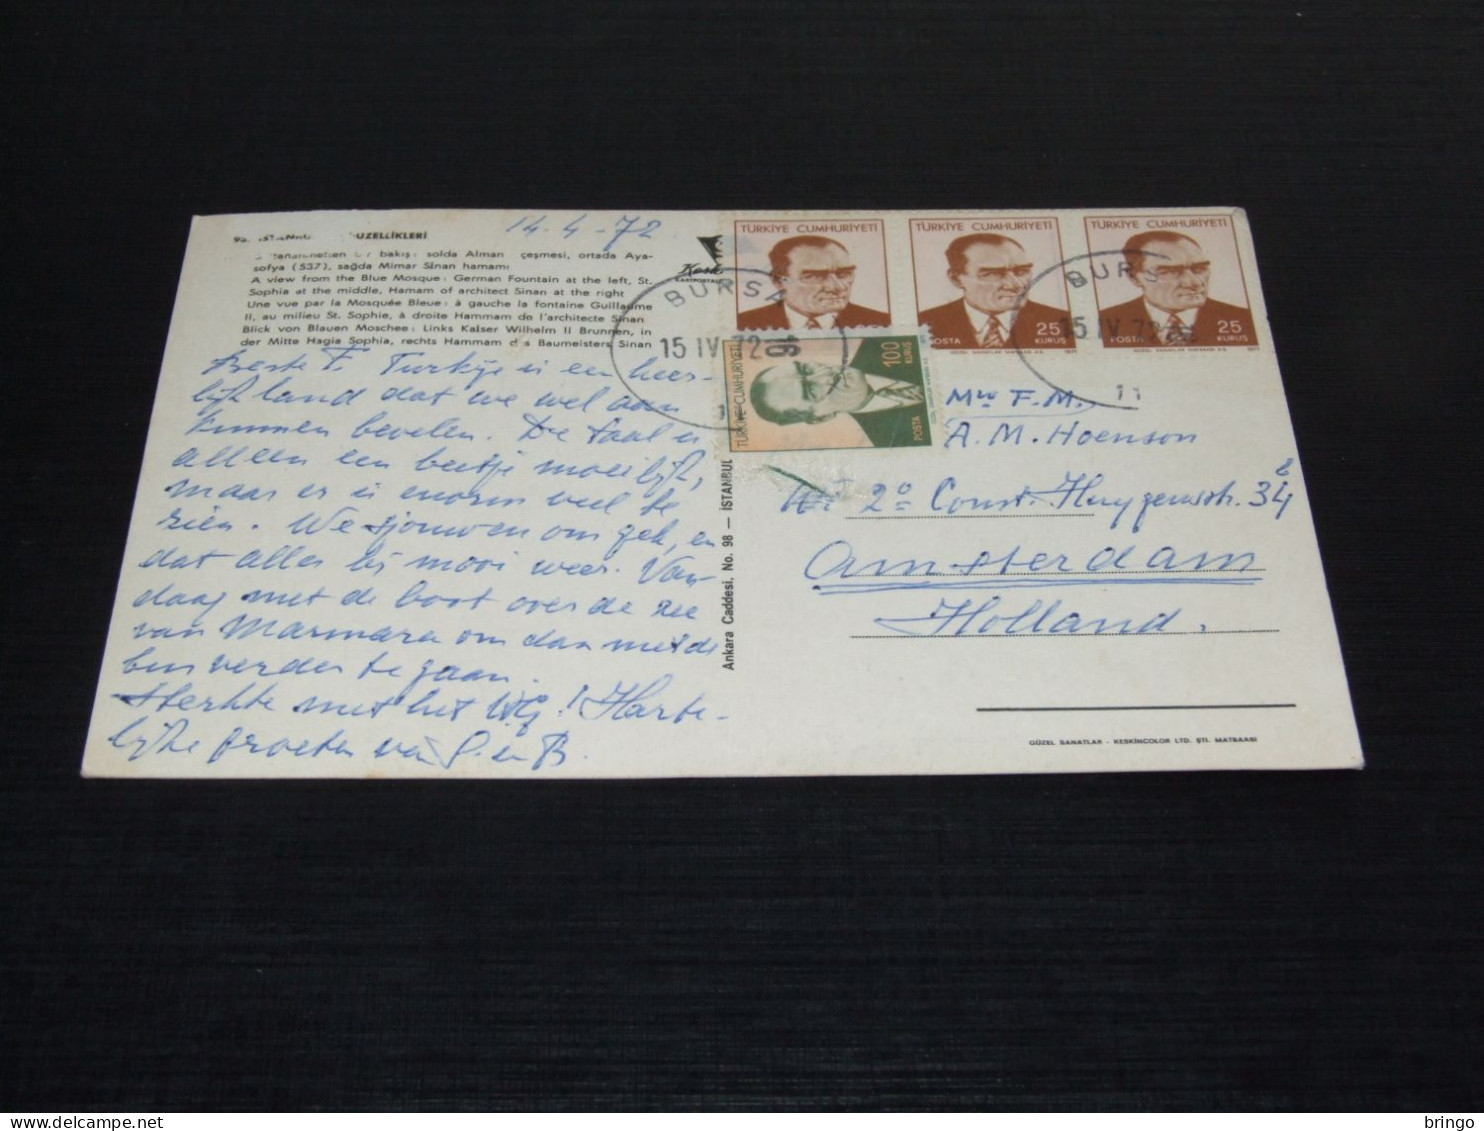 14-4-72
UZELLİKLERİ
bakış: solda Alman çeşmesi, ortada Aya-
sofya (537), sağda Mimar Sinan hamamı
A view from the Blue Mosque: German Fountain at the left, St.
Sophia at the middle, Hamam of architect Sinan at the right
Une vue par la Mosquée Bleue: à gauche la fontaine Guillaume
II, au milieu St. Sophie, à droite Hammam de l'architecte Sinan
Blick von Blauen Moschee: Links Kaiser Wilhelm II Brunnen, in
der Mitte Hagia Sophia, rechts Hammam des Baumeisters Sinan
Beste F. Turkije is een heer-
lijk land dat we wel aan
kunnen bevelen. De taal is
alleen een beetje moeilijk,
maar er is enorm veel te
zien. We sjouwen om gek, en
dat alles bij mooi weer. Van-
daag met de boot over de zee
van Marmara om dan met de
bus verder te gaan.
Sterkte met het WG! Harte-
lijke groeten van en B.
Ankara Caddesi, No. 98 — İSTANBUL
Kesk
BURSA
15 IV 72 16
TÜRKİYE CUMHURİYETİ
TÜRKİYE CUMHURİYETİ
25
POSTA KURUŞ
TÜRKİYE CUMHURİYETİ
25
POSTA KURUŞ
BURS
15 IV 72
11
TÜRKİYE CUMHURİYETİ
100
KURUŞ
POSTA
F.M.
A.M. Hoenson
2e Const. Huygensstr. 34
Amsterdam
Holland.
GÜZEL SANATLAR - KESKİNCOLOR LTD. ŞTİ. MATBAASI
bringo